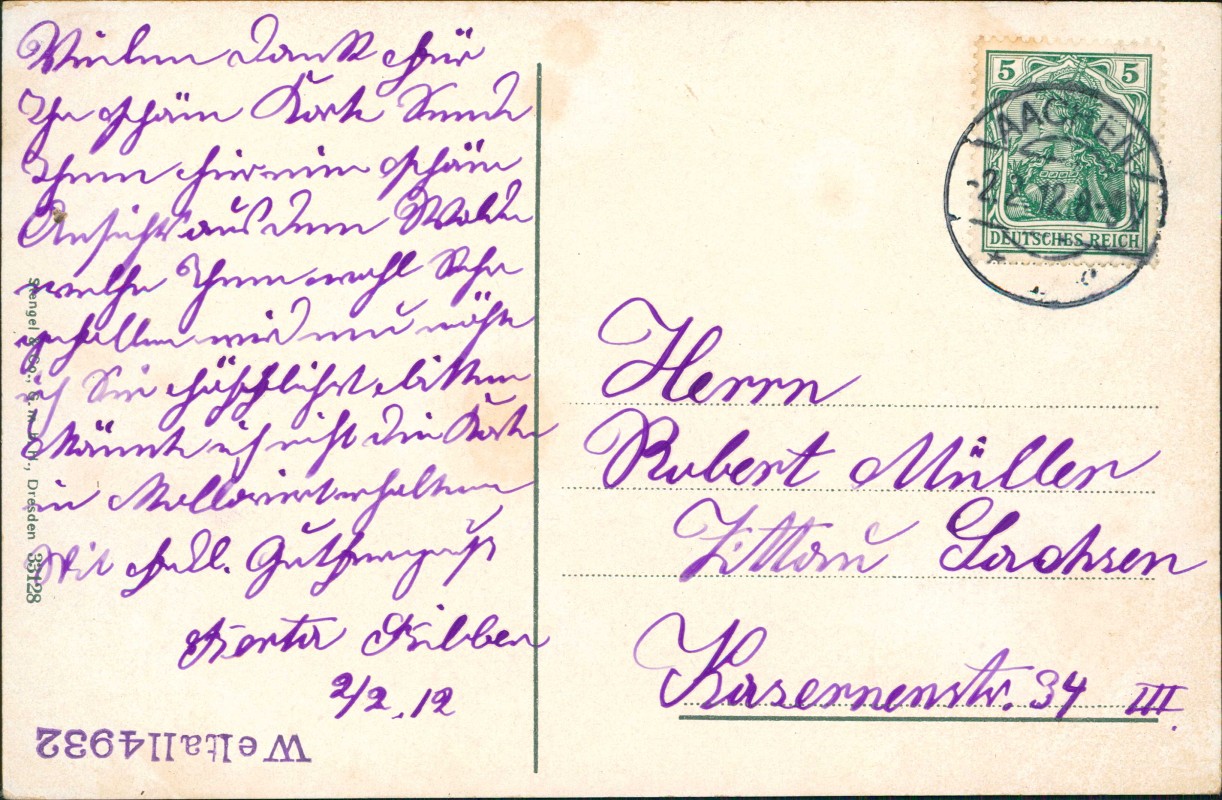 Vielen Dank für
Ihr schöne Karte Sende
Ihnen hier eine schöne
Ansicht aus dem Walde
welche Ihnen wohl Sehr
gefallen wird nun möchte
ich Sie höflichst bitten
könnte ich nicht die Karte
in erhalten
Mit frdl. Gruß
Berta
2/2.12
Weltall4932
Stengel & Co., G. m. b. H., Dresden 35128
5 5
DEUTSCHES REICH
AACHEN
2.2.12.8-9V
Herrn
Robert Müller
Zittau Sachsen
Kasernenstr. 34 III.